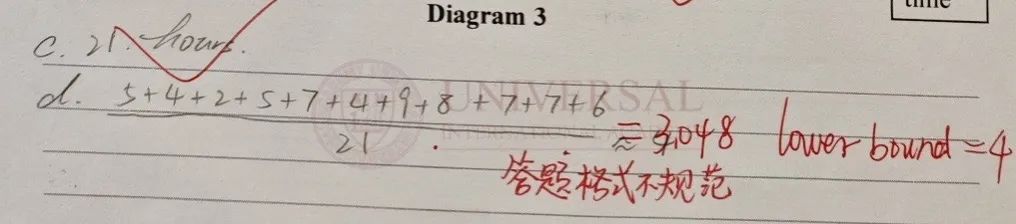 Diagram 3
time
c. 21. hours.
d. 5+4+2+5+7+4+9+8+7+7+6
21
= ≈ 3.048 lower bound = 4
答题格式不规范
UNIVERSAL